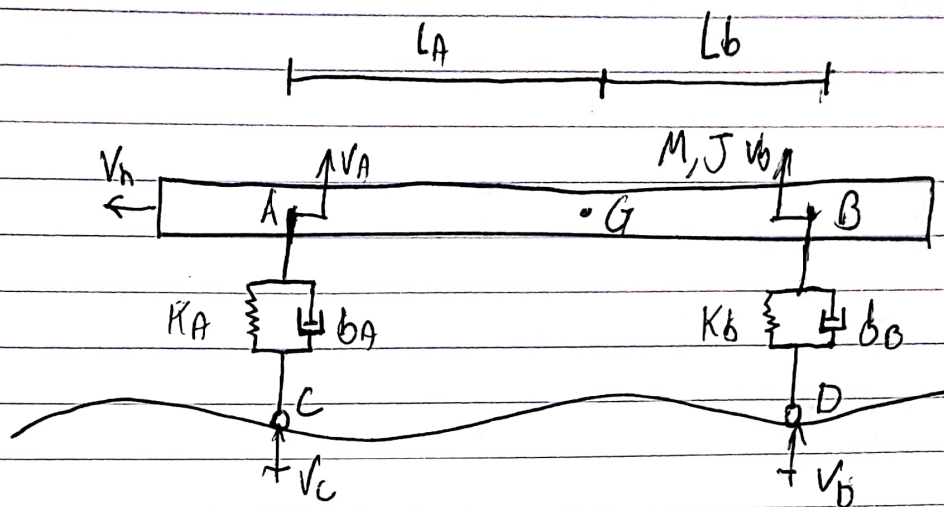 LA Lb
Vh VA M, J Vb
A G B
KA bA Kb bB
C D
VC VD